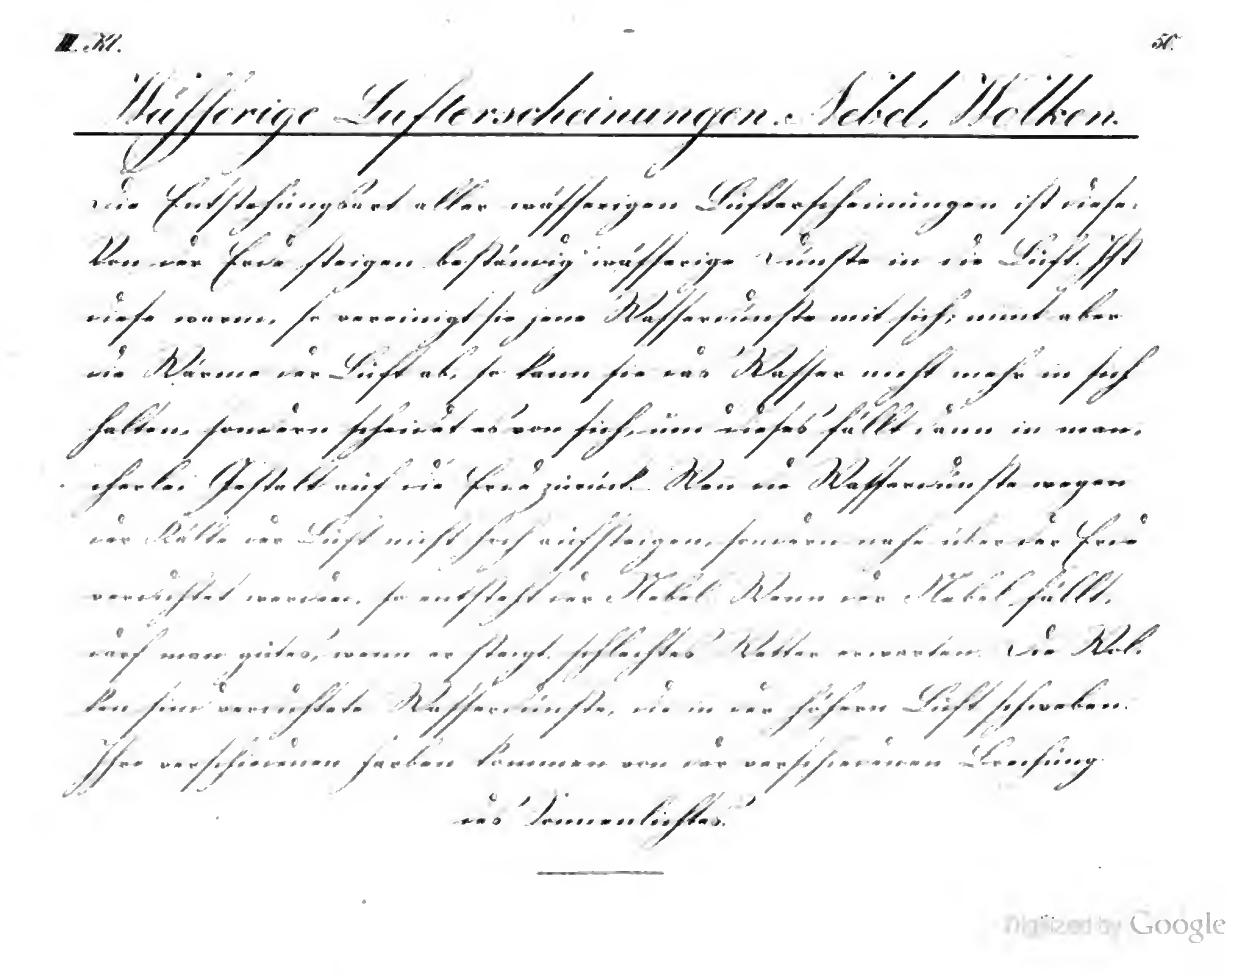 III. Kl.
50.
Wässerige Lufterscheinungen. Nebel, Wolken.
Die Entstehungsart aller wässerigen Lufterscheinungen ist diese:
Von der Erde steigen beständig wässerige Dünste in die Luft. Ist
diese warm, so vereinigt sie jene Wasserdünste mit sich; nimt aber
die Wärme der Luft ab, so kann sie das Wasser nicht mehr in sich
halten, sondern scheidet es von sich, und dieses fällt dann in man-
cherlei Gestalt auf die Erde zurück. Wen die Wasserdünste wegen
der Kälte der Luft nicht hoch aufsteigen, sondern nahe über der Erde
verdichtet werden, so entsteht der Nebel. Wenn der Nebel fällt,
darf man gutes, wenn er steigt, schlechtes Wetter erwarten. Die Wol-
ken sind verdichtete Wasserdünste, die in der höhern Luft schweben.
Ihre verschiedenen Farben kommen von der verschiedenen Brechung
des Sonnenlichtes.
Digitized by Google